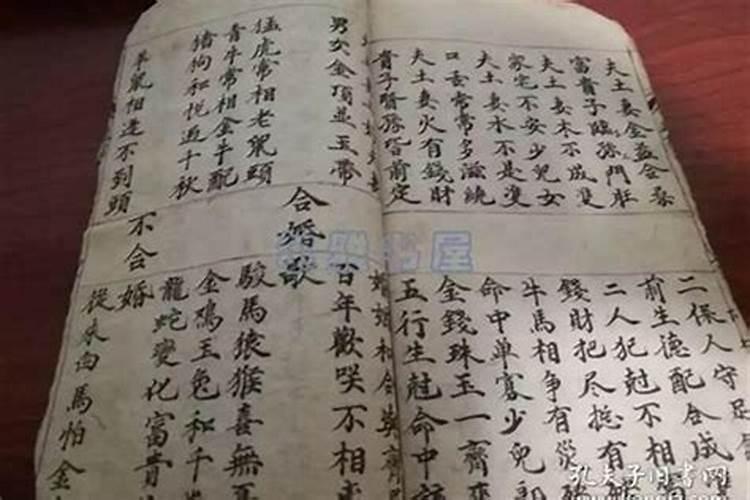 夫土妻金益合
富貴子臨孫門旺
夫土妻木不成雙
家宅不安少兒女
夫土妻水不是雙
口舌常常多滋繞
夫土妻火有錢財
貴子賢孫皆前定
男女金頂並玉帶
猛虎常相老鼠頭
青牛常相金牛配
猪狗和悅過千秋
羊鼠相逢不到頭
二保人守足
前生德配合成
二人犯尅不相
錢財把尽挺有
牛馬相争有災
命中单寡少兒郎
金錢珠玉一齊來
五行生尅命中
婚姻和合
百年歡咲不相
合婚歌
駿馬猿猴喜無
金鸡玉兔和千
龍蛇變化富貴
不合婚
從來白馬怕金
孔夫子旧書网